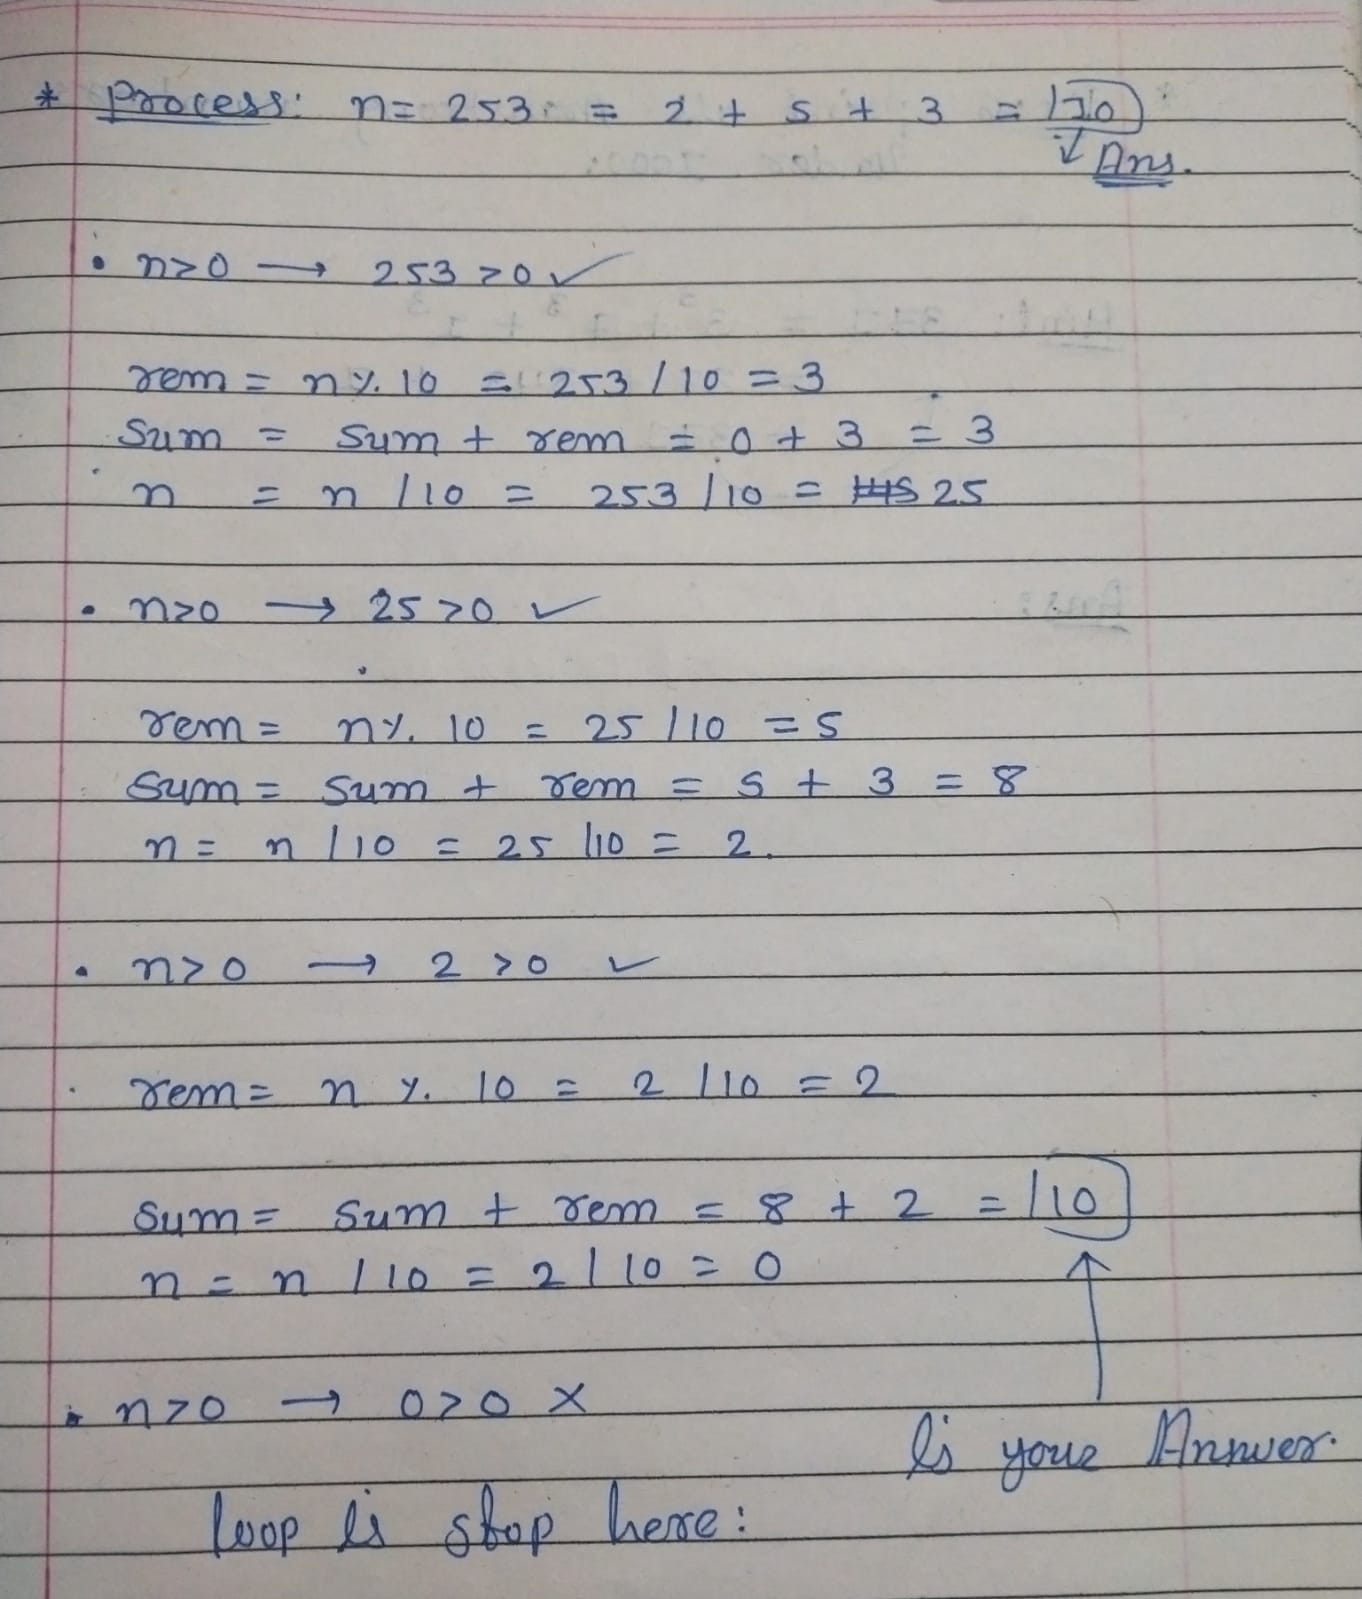 * Process: n = 253 = 2 + 5 + 3 = 10
↓ Ans.
• n>0 → 253 >0 ✓
rem = n % 10 = 253 / 10 = 3
Sum = Sum + rem = 0 + 3 = 3
n = n / 10 = 253 / 10 = 25
• n>0 → 25 >0 ✓
rem = n % 10 = 25 / 10 = 5
Sum = Sum + rem = 5 + 3 = 8
n = n / 10 = 25 / 10 = 2.
• n>0 → 2 >0 ✓
rem = n % 10 = 2 / 10 = 2
Sum = Sum + rem = 8 + 2 = 10
n = n / 10 = 2 / 10 = 0
• n>0 → 0>0 ×
is your Answer.
loop is stop here: